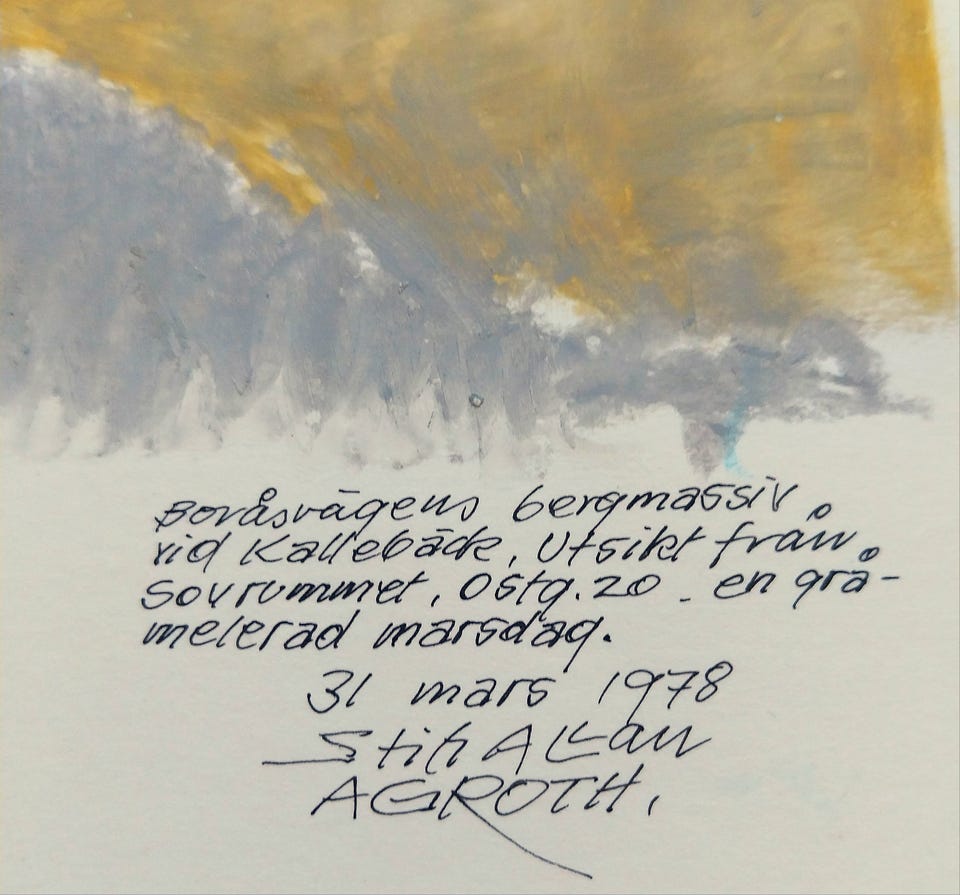 Boråsvägens bergmassiv
vid Kallebäck, Utsikt från
sovrummet, Ostg. 20 - en grå-
melerad marsdag.
31 mars 1978
Stig Allan
AGROTH.